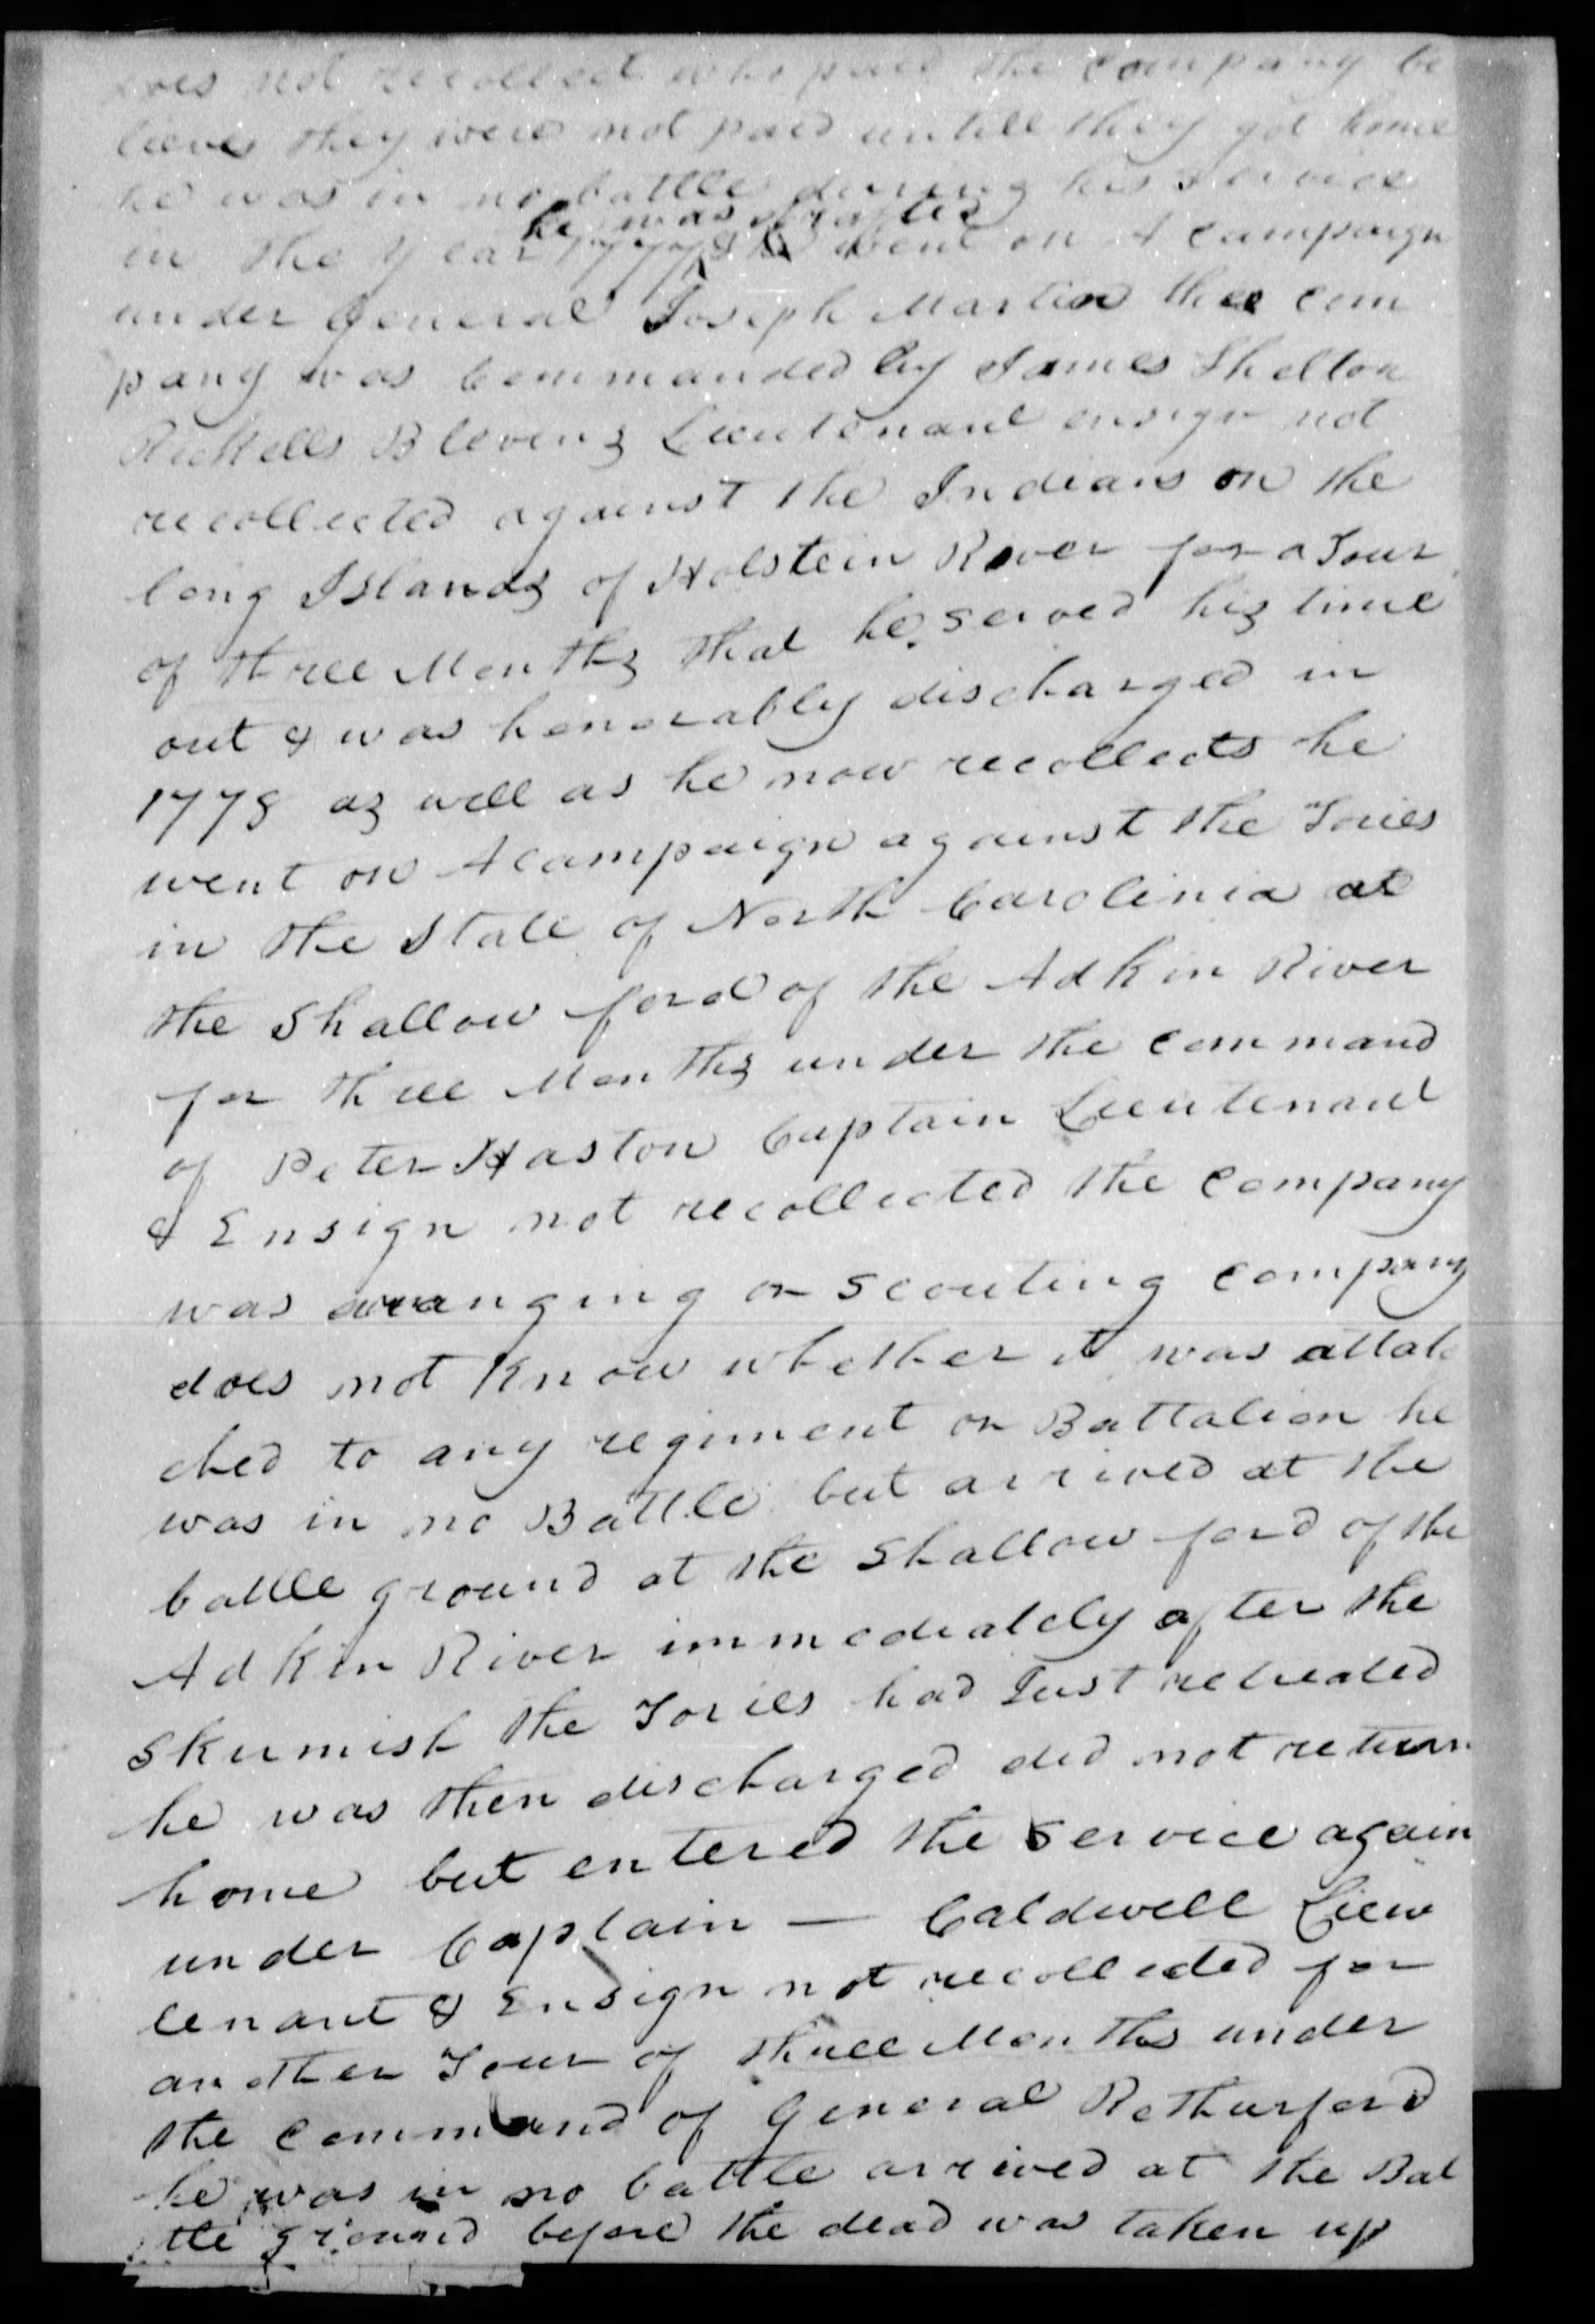 does not recollect who paid the company be
lieves they were not paid untill they got home
he was in no battle during his service
he was drafted
in the year 1777 & went on A campaign
under General Joseph Martin the com
pany was commanded by James Shelton
Blevins Lieutenant ensign not
recollected against the Indians on the
long Islands of Holstein River for a Tour
of three Months that he served his time
out & was honorably discharged in
1778 as well as he now recollects he
went on A campaign against the Tories
in the State of North Carolinia at
the Shallow ford of the Adkin River
for three Months under the command
of Peter Haston Captain Lieutenant
& Ensign not recollected the company
was a ranging or scouting company
does not Know whether it was attat
ched to any regiment or Battalion he
was in no Battle but arrived at the
battle ground at the Shallow ford of the
Adkin River immediately after the
Skirmish the Tories had Just retreated
he was then discharged did not return
home but entered the service again
under Captain — Caldwell Lieu
tenant & Ensign not recollected for
another Tour of three Months under
the command of General Rotherford
he was in no battle arrived at the Bat
tle ground before the dead was taken up